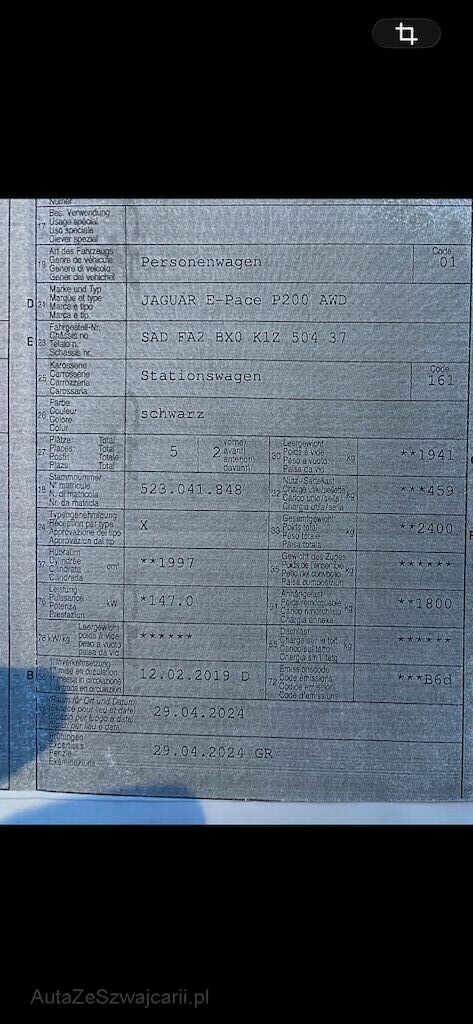 Numer
17 Bes. Verwendung
Usage spécial
Uso speciale
Diever spezial
19 Art des Fahrzeugs
Genre de véhicule
Genere di veicolo
Gener dal vehichel
Personenwagen
Code
01
D 21 Marke und Typ
Marque et type
Marca e tipo
Marca e tip
JAGUAR E-Pace P200 AWD
E 23 Fahrgestell-Nr.
Châssis no
Telaio n.
Schassis nr.
SAD FA2 BX0 K1Z 504 37
25 Karosserie
Carrosserie
Carrozzeria
Carossaria
Stationswagen
Code
161
26 Farbe
Couleur
Colore
Colur
schwarz
27 Plätze: Total
Places: Total
Posti: Totale
Plazs: Total
5 2 vorne)
avant)
anteriori)
davant)
30 Leergewicht
Poids à vide
Peso a vuoto
Paisa da vid
kg **1941
18 Stammnummer
N° matricule
N. di matricola
Nr. da matricla
523.041.848
32 Nutz-/Sattellast
Charge utile/sellette
Carico utile/sella
Chargia utila/sella
kg ***459
Typengenehmigung
Réception par type
Approvazione del tipo
Approvaziun dal tip
X
33 Gesamtgewicht
Poids total
Peso totale
Paisa totala
kg **2400
37 Hubraum
Cylindrée
Cilindrata
Cilindrada
cm³ **1997
35 Gewicht des Zuges
Poids de l'ensemble
Peso del convoglio
Paisa cumposiziun
kg ******
Leistung
Puissance
Potenza
Prestaziun
kW *147.0
31 Anhängelast
Poids remorquable
Carico rimorchiabile
Chargia annexa
kg **1800
78 kW/kg Leergewicht
poids à vide
peso a vuoto
paisa da vid
******
55 Dachlast
Charge sur le toit
Carico sul tetto
Chargia sin il tetg
kg ******
B 36 1. Inverkehrsetzung
1re mise en circulation
1a messa in circolazione
1. entrada en circulaziun
12.02.2019 D
72 Emissionscode
Code émissions
Codice emissioni
Code d'emissiuns
***B6d
(Raum für Ort und Datum)
(Espace pour lieu et date)
(Spazio per luogo e data)
(Spazi per lieu e data)
29.04.2024
Prüfungen
Expertises
Perizie
Examinaziuns
29.04.2024 GR
AutaZeSzwajcarii.pl